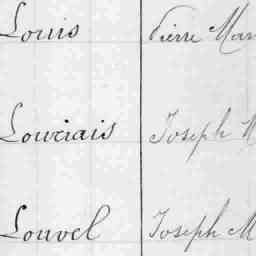 Louis Pierre Mar
Louviais Joseph M
Louvel Joseph M